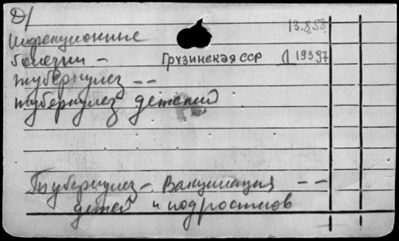 Д/
13.8.58
Инфекционные
болезни – Грузинская ССР Л 19397
туберкулез – –
туберкулез детский
Туберкулез – Вакцинация – –
детей и подростков